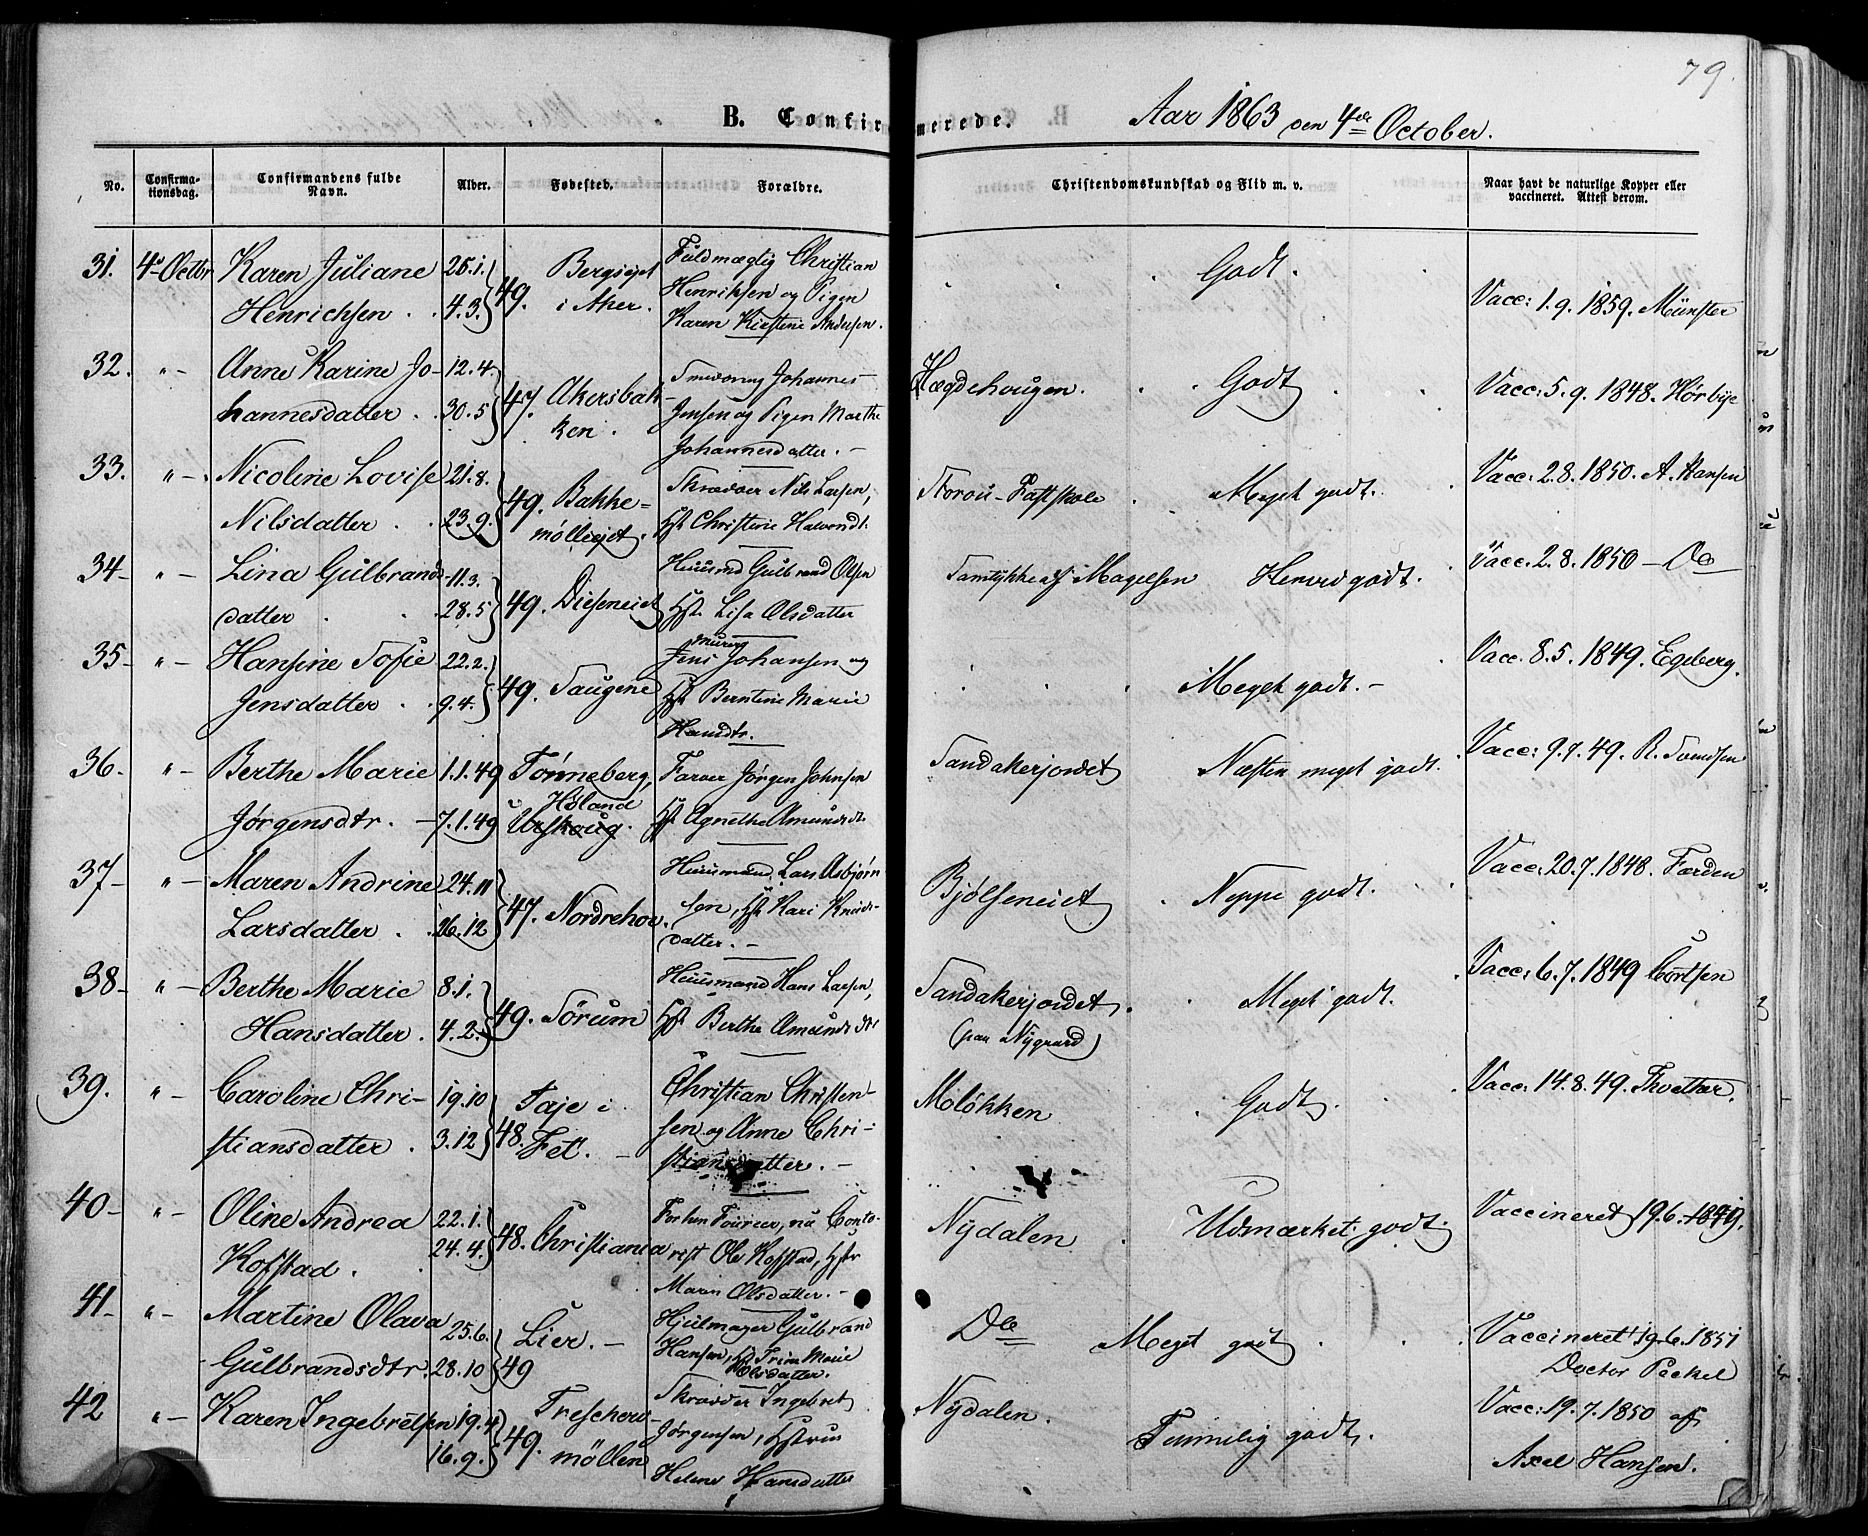 79.
B. Confirmerede. Aar 1863 den 4de October.
No. Confirma-tionsdag. Confirmandens fulde Navn. Alder. Fødested. Forældre. Christendomskundskab og Flid m. v. Naar havt de naturlige Kopper eller vaccineret. Attest derom.
31. 4de Octbr Karen Juliane 26.1. 49. Bergsejet Fuldmægtig Christian Godt.
Henrichsen . 4.3. i Aker. Henriksen og Pigen Vacc: 1.9.1859. Münster
Karen Kirstine Andersen.
32. "- Anne Karine Jo- 12.4. 47. Akersbak- Johannes Hægdehougen. Godt Vacc: 5.9.1848. Hørbye
hannesdatter . 30.5 ken. Jensen og Pigen Marthe
Johannesdatter. -
33. "- Nicoline Lovise 21.8. 49. Bakke- Skrædder Nils Larsen, Storou-Fastskole Meget godt. Vacc: 2.8.1850. A. Hansen
Nilsdatter . 23.9. møllejet. Hst Christine Halvorsdt.
34- "- Lina Gulbrands 11.3. 49. Dieseneiet Huusmd Gulbrand Olsen Magelsen godt. Vacc: 2.8.1850 - Do
datter . 28.5 Hst. Lisa Olsdatter
35- "- Hansine Sofie 22.2. 49. Saugene Murer Jens Johansen og Meget godt. - Vacc. 8.5.1849. Egeberg.
Jensdatter . 9.4. Hst Berntine Marie
Hansdtr.
36. "- Berthe Marie 1.1.49 Tønneberg, Farver Jørgen Johnsen Sandakerjordet Næsten meget godt. Vacc: 9.7.49. R. Svendsen
Jørgensdtr. - 7.1.49 Høland Urskoug. Hst Agnethe Amundsdt.
37- "- Maren Andrine 24.11 47. Nordrehov. Huusmand Lars Asbjørn- Bjølseneiet Neppe godt. Vacc: 20.7.1848. Færden
Larsdatter . 26.12 sen, Hst Kari
datter. -
38- "- Berthe Marie 8.1. 49. Sørum Huusmand Hans Larsen, Sandakerjordet. Meget godt. Vacc: 6.7.1849
Hansdatter . 4.2. Hst Berthe Amundsdtr (paa Nygaard)
39. "- Caroline Chri- 19.10 48. Faje i Christian Christen- Moløkken Godt. Vacc: 14.8.49.
stiansdatter . 3.12 Fet. - sen og Anne Chri-
stiansdatter. -
40- "- Oline Andrea 22.1. 48. Christiania Forhen Foureer, nu Conto- Nydalen Udmærket godt. Vaccineret 19.6.1849.
Kofstad . 24.4. rist Ole Kofstad, Hstr
Maren Olsdatter. -
41- "- Martine Olava 25.6. 49 Lier. - Hjulmager Gulbrand Do Meget godt Vaccineret 19.6.1851
Gulbrandsdtr. 28.10 Hansen, Hst Marie Olsdatter. Doctor Peckel
42 "- Karen Ingebretsen 19.4 49. Treschow- Skrædder Ingebret Nydalen. Temmelig godt. Vacc: 19.7.1850 af
16.9. møllen Jørgensen, Hstru Axel Hansen.
Helene Hansdatter